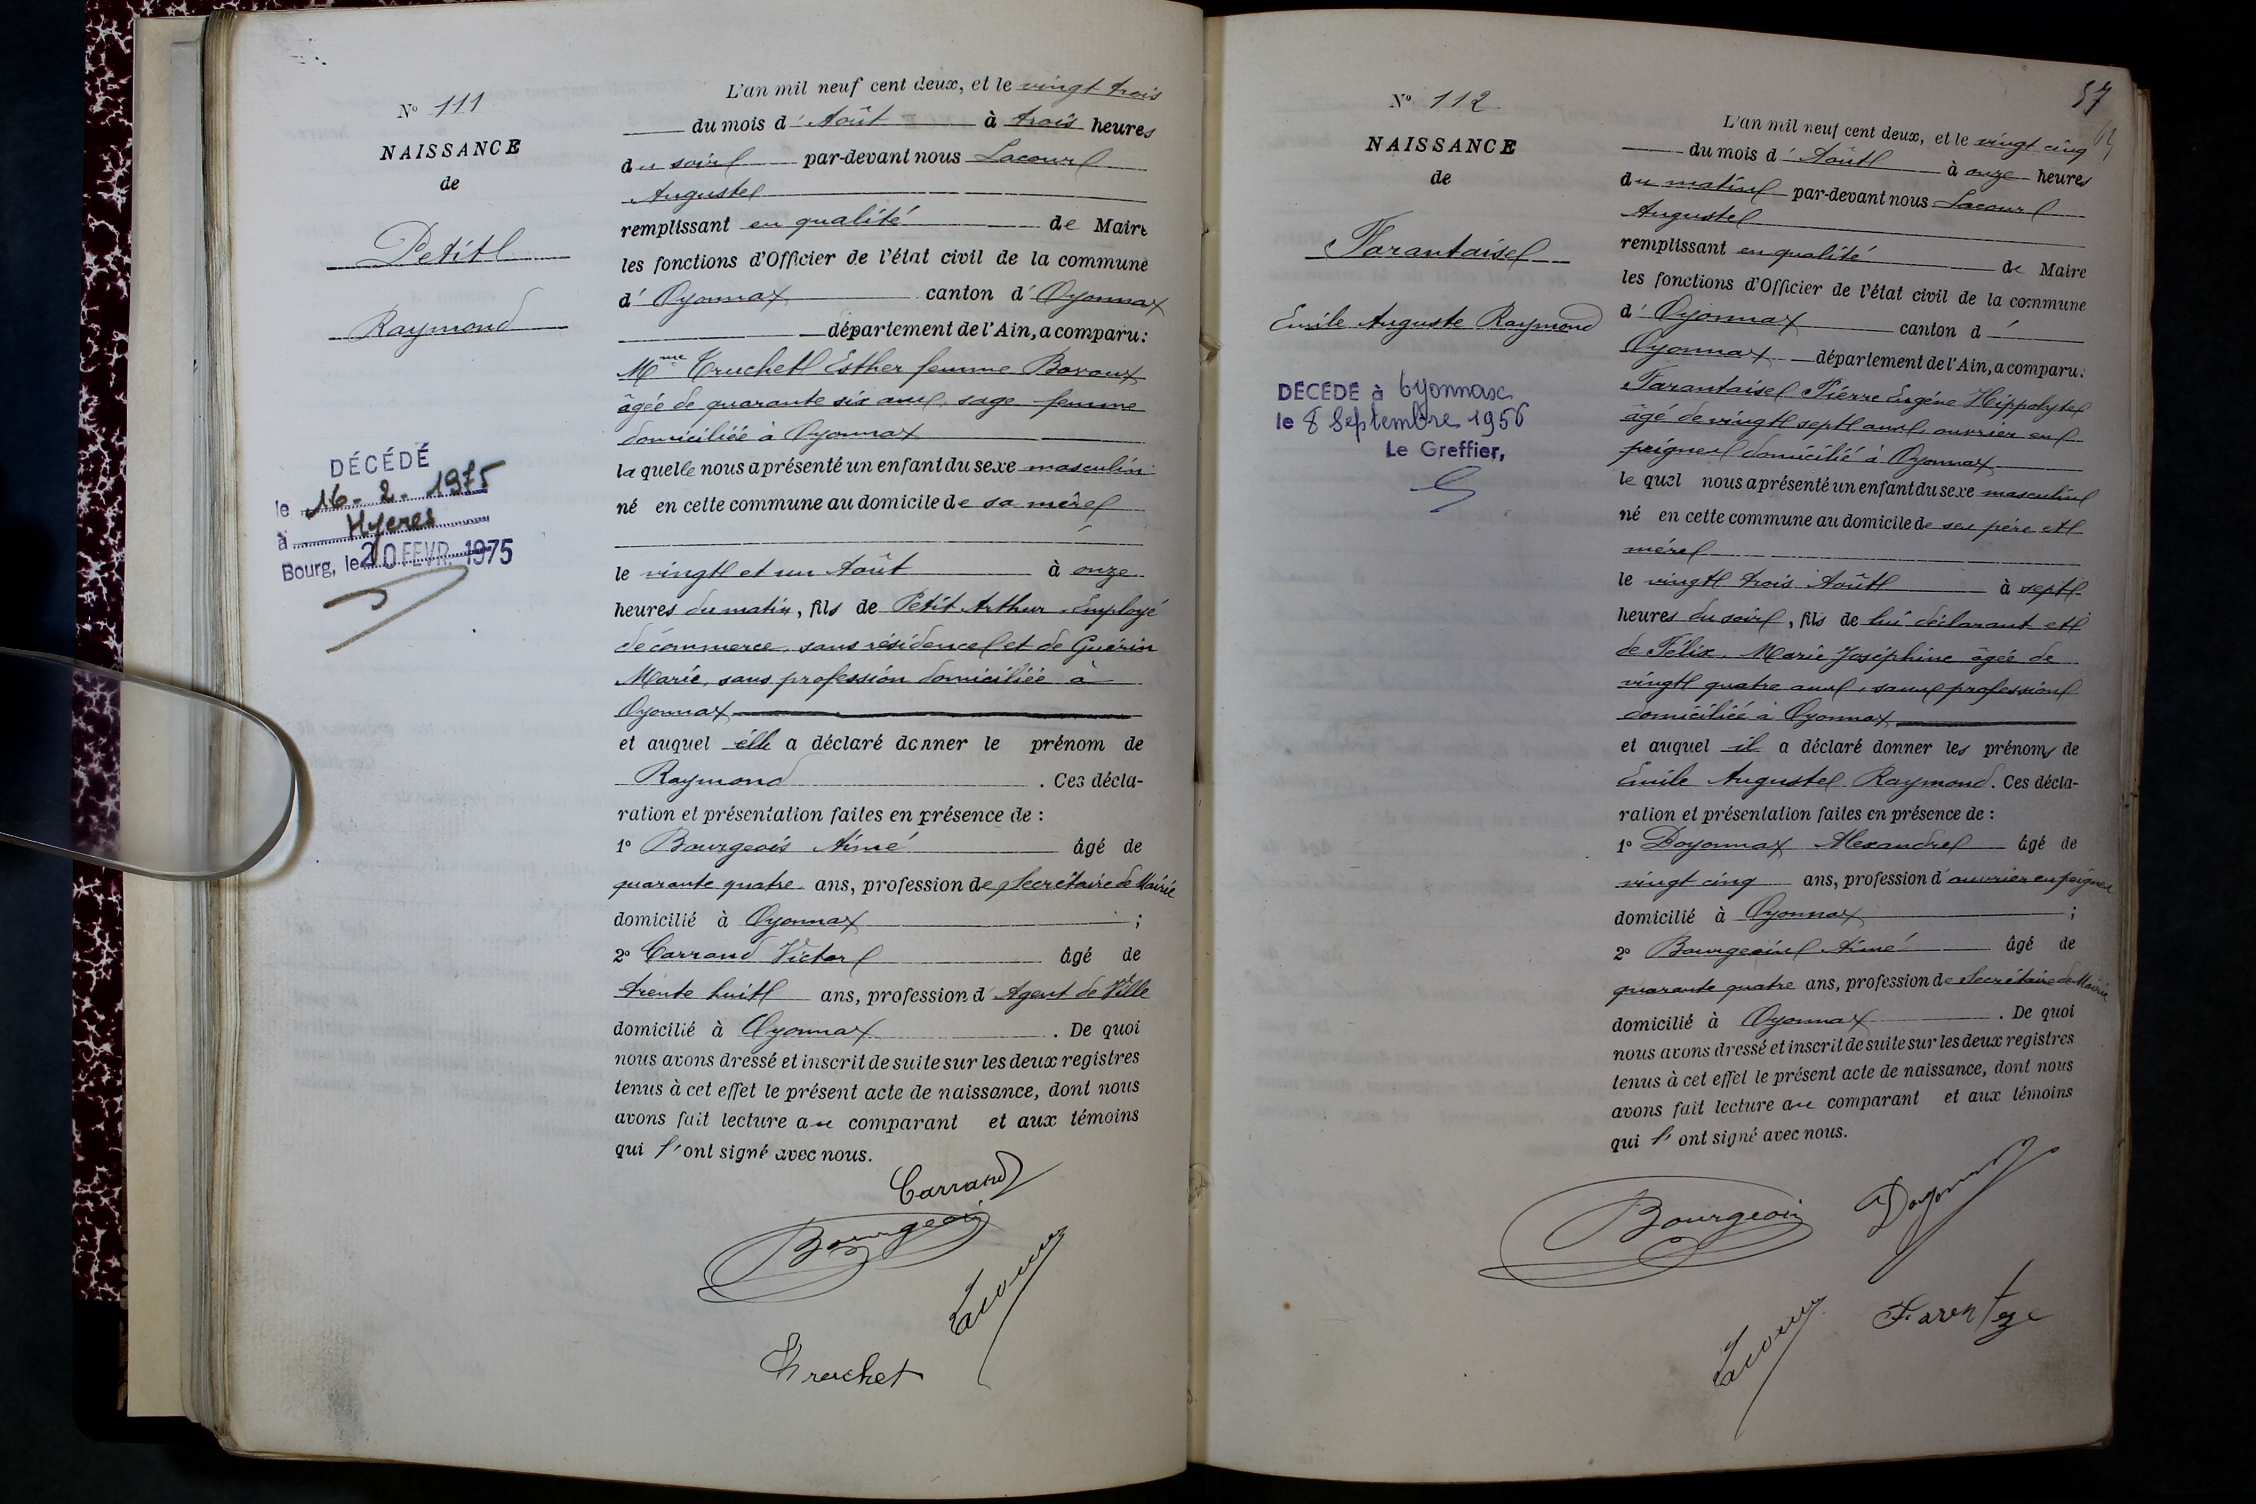 N° 111
NAISSANCE
de
Petit
Raymond
DÉCÉDÉ
le 16-2-1975
à Hyeres
Bourg, le 20 FEVR. 1975
L'an mil neuf cent deux, et le vingt trois
du mois d'Août à trois heures
du soir par-devant nous Lacour
Auguste
remplissant en qualité de Maire
les fonctions d'Officier de l'état civil de la commune
d'Oyonnax canton d'Oyonnax
département de l'Ain, a comparu:
Mme Truchet Esther femme Bovoux
âgée de quarante six ans, sage-femme
domiciliée à Oyonnax
laquelle nous a présenté un enfant du sexe masculin
né en cette commune au domicile de sa mère
le vingt et un Août à onze
heures du matin, fils de Petit Arthur Employé
de commerce, sans résidence et de Guérin
Marie, sans profession domiciliée à
Oyonnax
et auquel elle a déclaré donner le prénom de
Raymond. Ces décla-
ration et présentation faites en présence de:
1° Bourgeois Aimé âgé de
quarante quatre ans, profession de Secrétaire de Mairie
domicilié à Oyonnax;
2° Carrand Victor âgé de
trente huit ans, profession d'Agent de Ville
domicilié à Oyonnax. De quoi
nous avons dressé et inscrit de suite sur les deux registres
tenus à cet effet le présent acte de naissance, dont nous
avons fait lecture au comparant et aux témoins
qui l'ont signé avec nous.
Carrand
Bourgeois
Lacour
Truchet
57
N° 112
NAISSANCE
de
Tarantaise
Emile Auguste Raymond
DÉCÉDÉ à Oyonnax
le 8 Septembre 1956
Le Greffier,
L'an mil neuf cent deux, et le vingt cinq
du mois d'Août à onze heures
du matin par-devant nous Lacour
Auguste
remplissant en qualité de Maire
les fonctions d'Officier de l'état civil de la commune
d'Oyonnax canton d'
Oyonnax département de l'Ain, a comparu:
Tarantaise Pierre Eugène Hippolyte
âgé de vingt sept ans, ouvrier en
peignes domicilié à Oyonnax
lequel nous a présenté un enfant du sexe masculin
né en cette commune au domicile de ses père et
mère
le vingt trois Août à sept
heures du soir, fils de lui déclarant et
de Félix, Marie Joséphine âgée de
vingt quatre ans, sans profession
domiciliée à Oyonnax
et auquel il a déclaré donner les prénoms de
Emile Auguste Raymond. Ces décla-
ration et présentation faites en présence de:
1° Doyonnax Alexandre âgé de
vingt cinq ans, profession d'ouvrier en peignes
domicilié à Oyonnax;
2° Bourgeois Aimé âgé de
quarante quatre ans, profession de Secrétaire de Mairie
domicilié à Oyonnax. De quoi
nous avons dressé et inscrit de suite sur les deux registres
tenus à cet effet le présent acte de naissance, dont nous
avons fait lecture au comparant et aux témoins
qui l'ont signé avec nous.
Bourgeois
Lacour